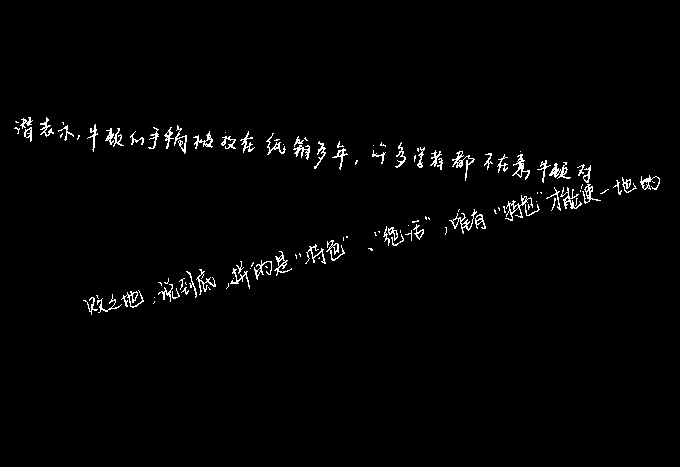 谱表示,牛顿的手稿被放在纸箱多年,许多学者都不在意牛顿对
败之地,说到底,拼的是“特色”、“绝活”,唯有“特色”才能使一地的